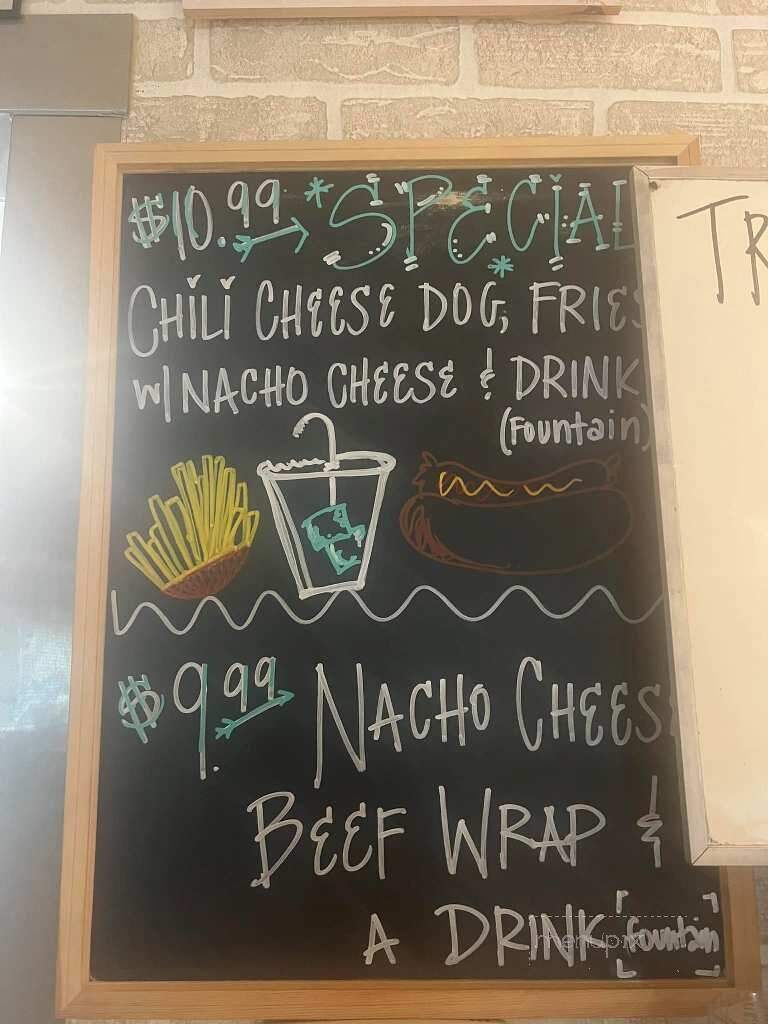 $10.99 *SPECIAL*
CHILI CHEESE DOG, FRIES
W/ NACHO CHEESE & DRINK
(Fountain)
$9.99 NACHO CHEESE
BEEF WRAP &
A DRINK [Fountain]
menupix
TR